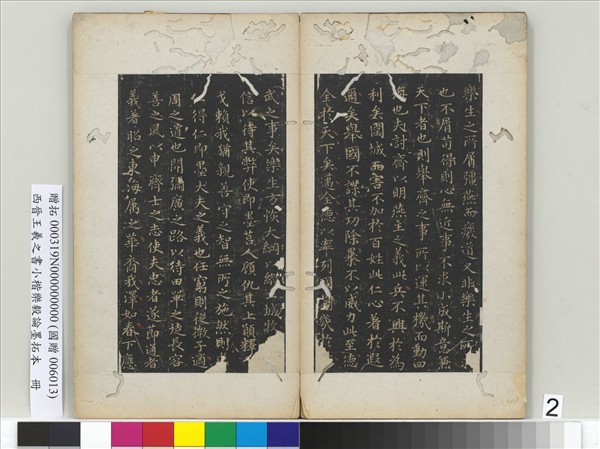 樂生之所屑彊燕而廢道又非樂生之所
也不屑苟得則心無近事不求小成斯意兼
天下者也則舉齊之事所以運其機而動四
海也夫討齊以明燕主之義此兵不興於為
利矣圍城而害不加於百姓此仁心著於遐
邇矣舉國不謀其功除暴不以威力此至德
全於天下矣邁全德以率列國幾於
武之事矣樂生方恢大綱縱城收
信以待其弊使即墨莒人顧仇其上願釋
戈賴我猶親善守之智無所之施然則
得仁即墨大夫之義也任窮則從微子適
周之道也開彌廣之路以待田單之徒長容
善之風以申齊士之志使夫忠者遂節通者
義著昭之東海屬之華裔我澤如春下應
贈拓 000319N000000000 (國贈 006013)
西晉王羲之書小楷樂毅論墨拓本 冊
2